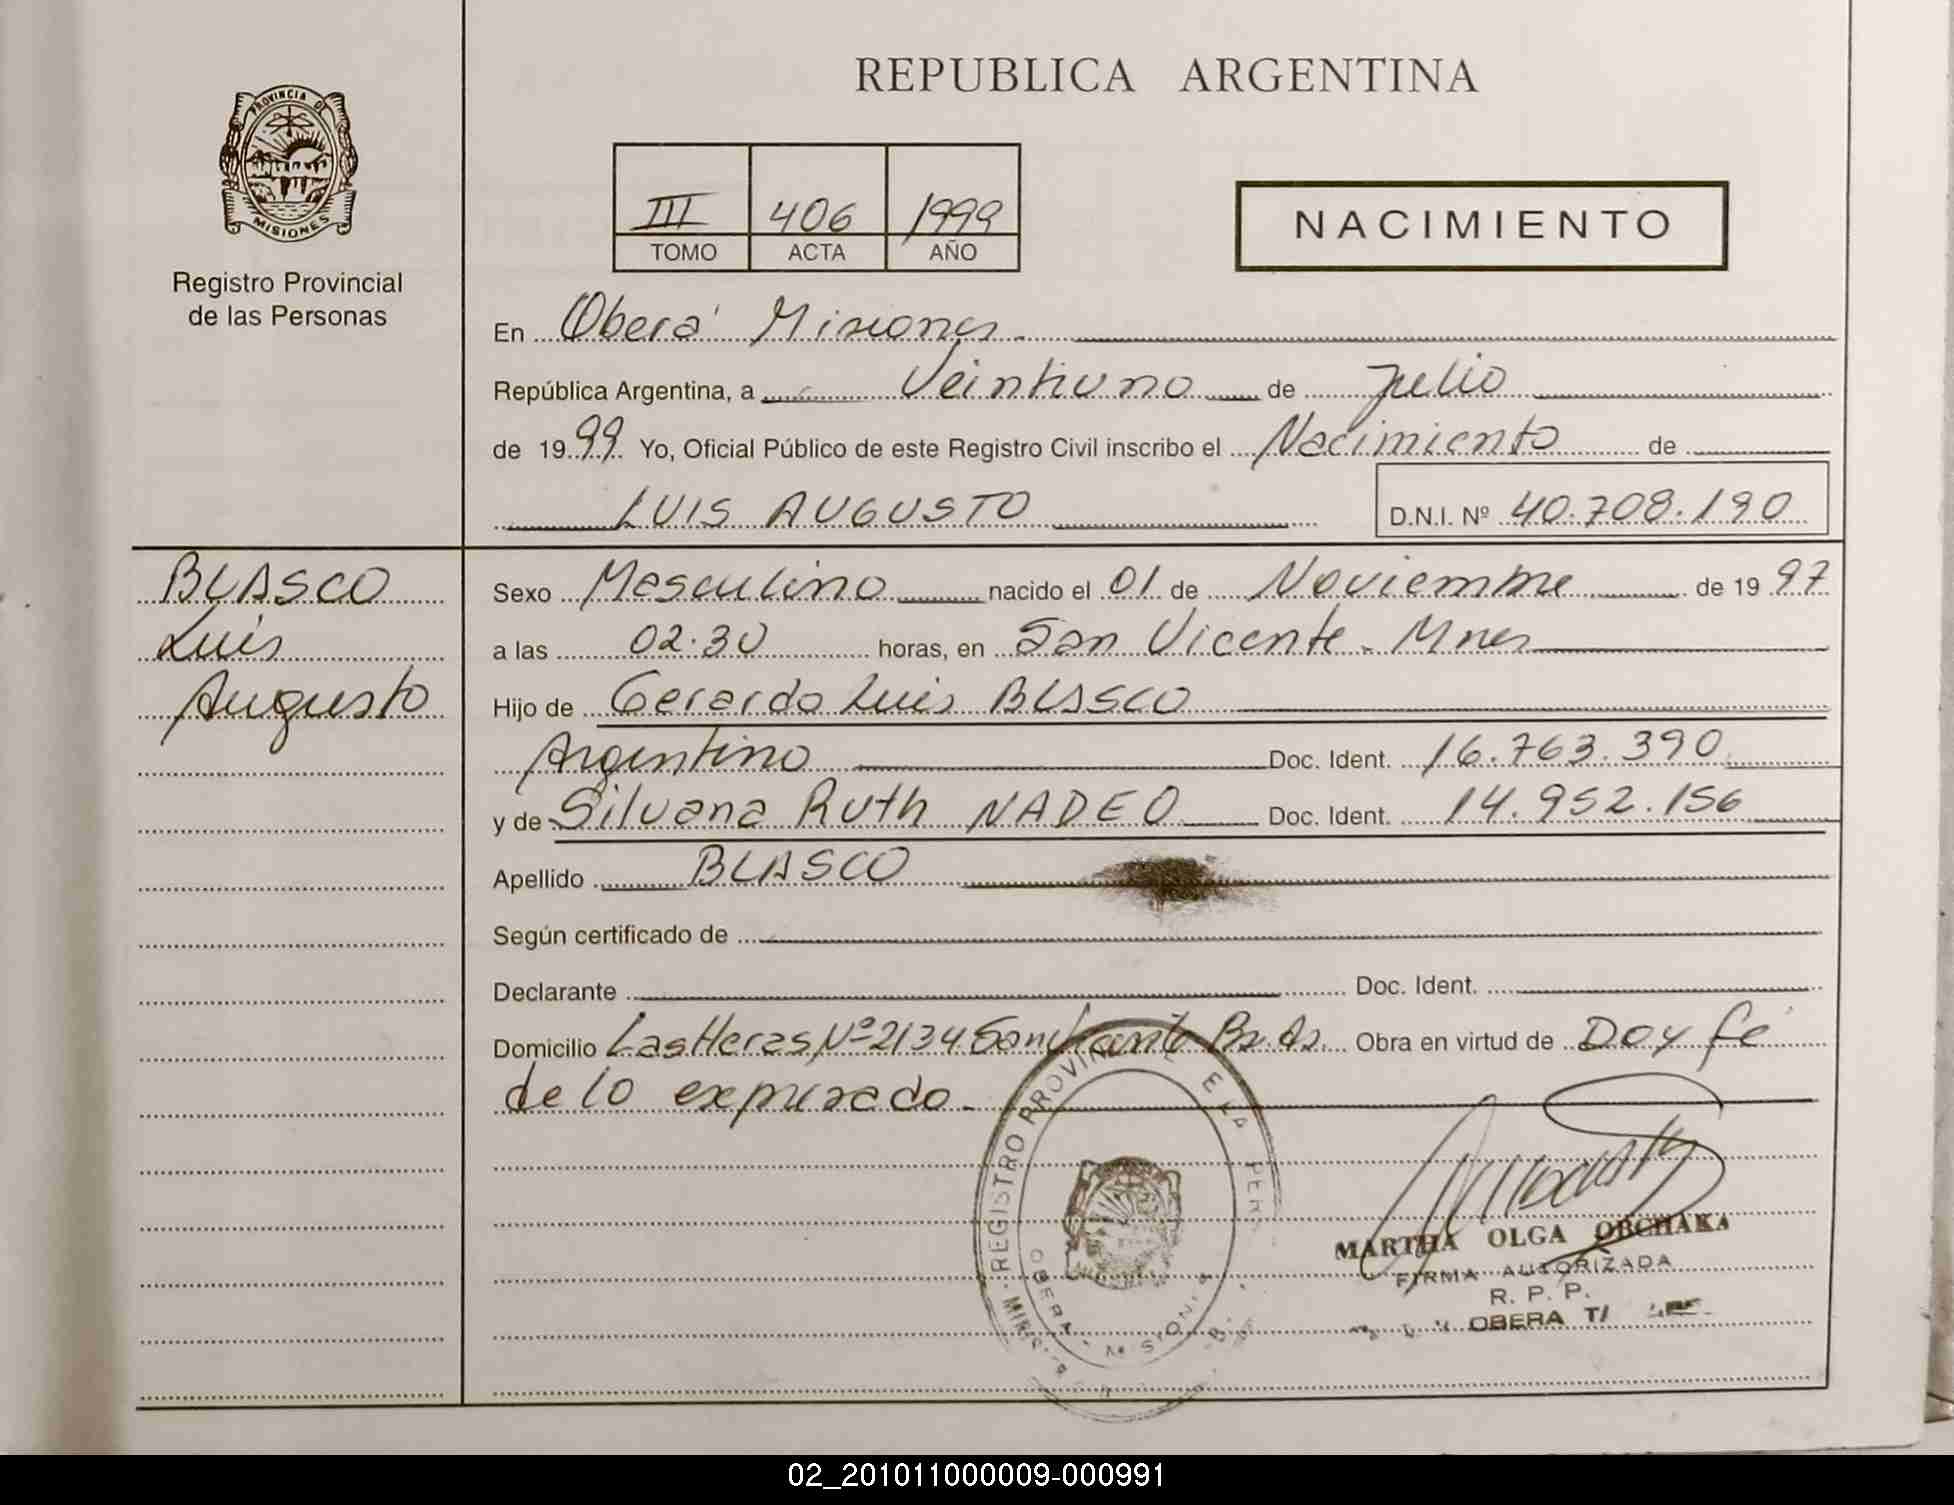 PROVINCIA DE
MISIONES
Registro Provincial
de las Personas
REPUBLICA ARGENTINA
III 406 1999
TOMO ACTA AÑO
NACIMIENTO
En Oberá Misiones
República Argentina, a Veintiuno de Julio
de 1999 Yo, Oficial Público de este Registro Civil inscribo el Nacimiento de
LUIS AUGUSTO D.N.I. Nº 40.708.190
BLASCO
Luis
Augusto
Sexo Masculino nacido el 01 de Noviembre de 1997
a las 02.30 horas, en San Vicente. Mnes
Hijo de Gerardo Luis BLASCO
Argentino Doc. Ident. 16.763.390
y de Silvana Ruth NADEO Doc. Ident. 14.952.156
Apellido BLASCO
Según certificado de
Declarante Doc. Ident.
Domicilio Las Heras Nº 2134 Bs. As. Obra en virtud de Doy fe
de lo expresado.
REGISTRO PROVINCIAL
OBERA - MISIONES
MARTHA OLGA OBCHAKA
FIRMA AUTORIZADA
R. P. P.
OBERA
02_201011000009-000991